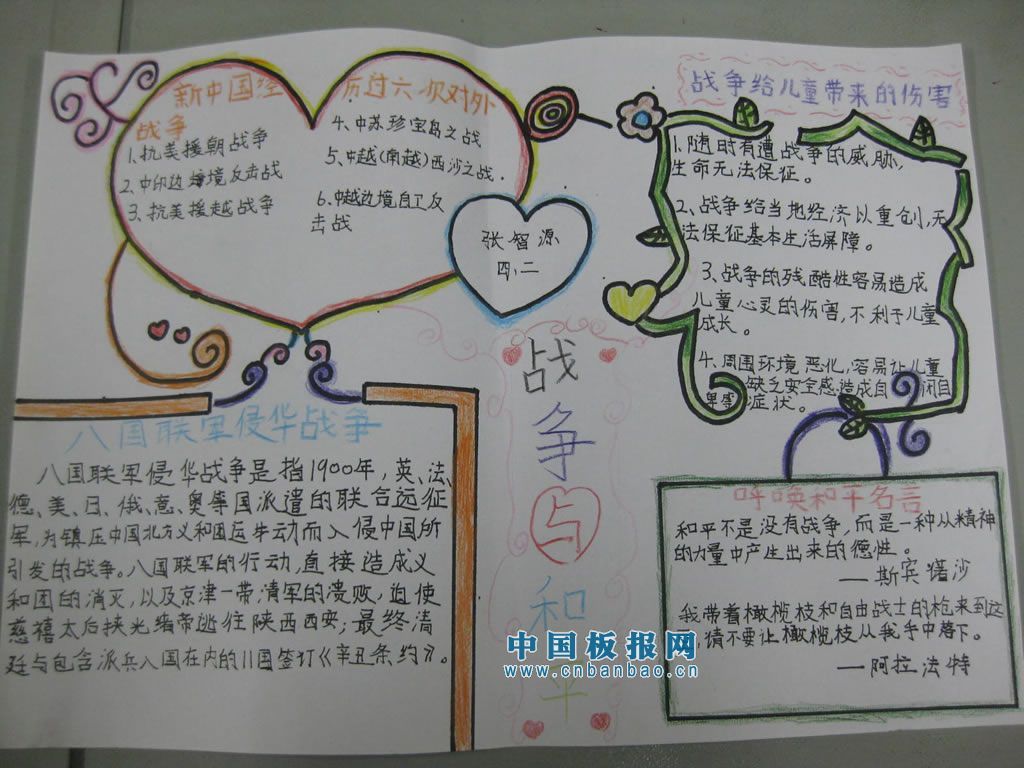 新中国经历过六次对外
战争
1.抗美援朝战争
2.中印边境反击战
3.抗美援越战争
4.中苏珍宝岛之战
5.中越(南越)西沙之战.
6.中越边境自卫反
击战
张智源
四、二
战争给儿童带来的伤害
1.随时有遭战争的威胁,
生命无法保证。
2、战争给当地经济以重创,无
法保证基本生活屏障。
3.战争的残酷性容易造成
儿童心灵的伤害,不利于儿童
成长。
4.周围环境恶化,容易让儿童
缺乏安全感造成自闭自
卑等症状。
八国联军侵华战争
八国联军侵华战争是指1900年,英、法、
德、美、日、俄、意、奥等国派遣的联合远征
军,为镇压中国北方义和团运动而入侵中国所
引发的战争。八国联军的行动,直接造成义
和团的消灭,以及京津一带清军的溃败,迫使
慈禧太后挟光绪帝逃往陕西西安;最终清
廷与包含派兵八国在内的11国签订《辛丑条约》。
战争与和平
呼唤和平名言
和平不是没有战争,而是一种从精神
的力量中产生出来的德性。
—斯宾诺沙
我带着橄榄枝和自由战士的枪来到这
,请不要让橄榄枝从我手中落下。
—阿拉法特
中国板报网
www.cnbanbao.cn